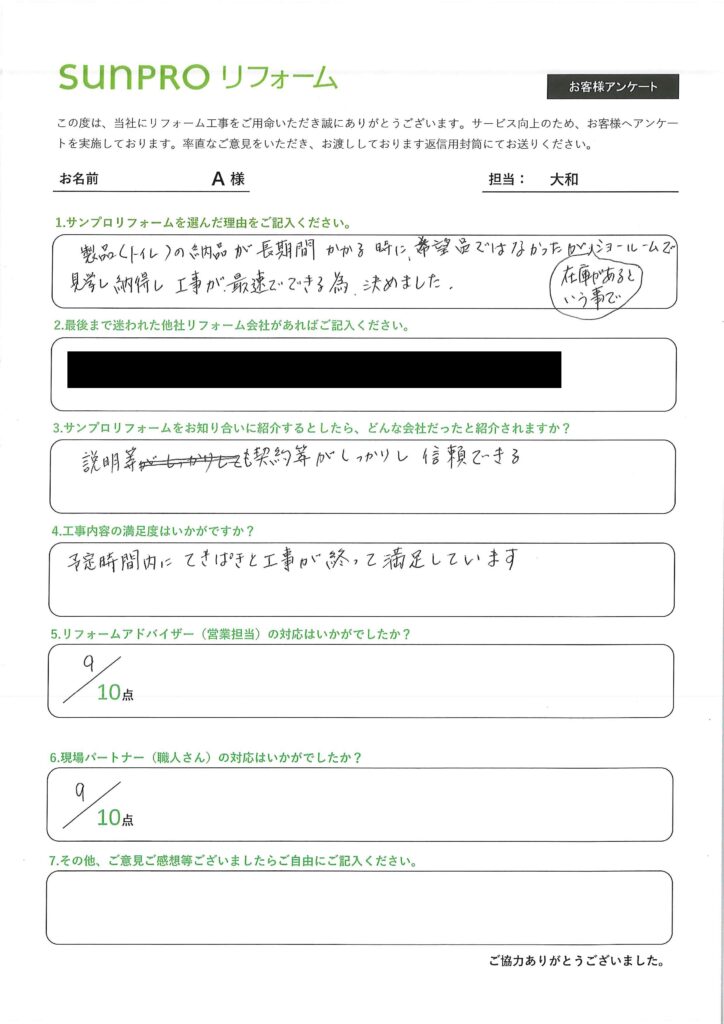 sunPRO リフォーム
お客様アンケート
この度は、当社にリフォーム工事をご用命いただき誠にありがとうございます。サービス向上のため、お客様へアンケー
トを実施しております。率直なご意見をいただき、お渡ししております返信用封筒にてお送りください。
お名前 A 様 担当： 大和
1.サンプロリフォームを選んだ理由をご記入ください。
製品(トイレ)の納品が長期間かかる時に、希望品ではなかったが、ショールームで
見学し納得し工事が、最速でできる為、決めました.
在庫があると
いう事で
2.最後まで迷われた他社リフォーム会社があればご記入ください。
3.サンプロリフォームをお知り合いに紹介するとしたら、どんな会社だったと紹介されますか？
説明等がしっかりしても契約等がしっかりし 信頼できる
4.工事内容の満足度はいかがですか？
予定時間内に てきぱきと工事が終って満足しています
5.リフォームアドバイザー（営業担当）の対応はいかがでしたか？
9
10点
6.現場パートナー（職人さん）の対応はいかがでしたか？
9
10点
7.その他、ご意見ご感想等ございましたらご自由にご記入ください。
ご協力ありがとうございました。